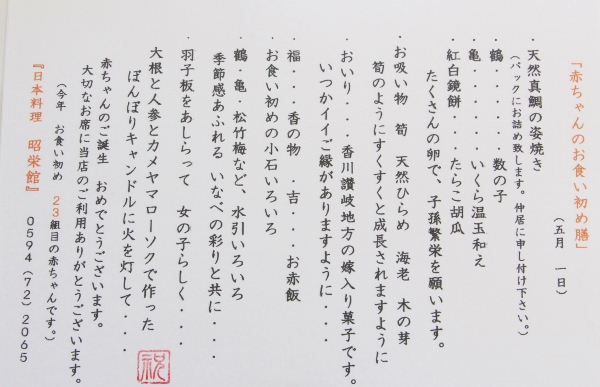 「赤ちゃんのお食い初め膳」
(五月 一日)
・天然真鯛の姿焼き
(パックにお詰め致します。仲居に申し付け下さい。)
・鶴・・・・数の子
・亀・・・・いくら温玉和え
・紅白鏡餅・・・・たらこ胡瓜
たくさんの卵で、子孫繁栄を願います。
・お吸い物 筍 天然ひらめ 海老 木の芽
筍のようにすくすくと成長されますように
・おいり・・・・香川讃岐地方の嫁入り菓子です。
いつかイイご縁がありますように・・・
・福・・・香の物 ・吉・・・お赤飯
・お食い初めの小石いろいろ
・鶴・亀・松竹梅など、水引いろいろ
季節感あふれる いなべの彩りと共に・・・
・羽子板をあしらって 女の子らしく・・・
大根と人参とカメヤマローソクで作った
ぼんぼりキャンドルに火を灯して・・・・
赤ちゃんのご誕生 おめでとうございます。
大切なお席に当店のご利用ありがとうございます。
(今年 お食い初め 23組目の赤ちゃんです。)
『日本料理 昭栄館』 0594(72)2065
祝